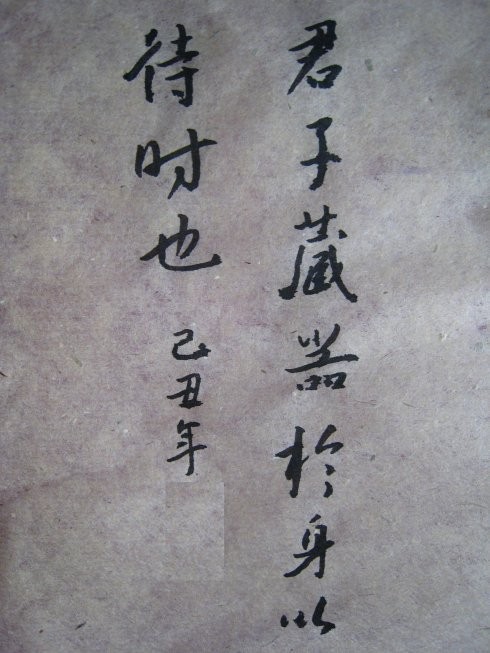 君子藏器於身以
待时也
己丑年